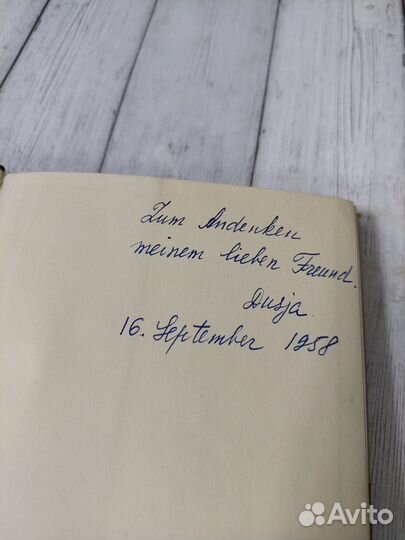 Zum Andenken
meinem lieben Freund.
Dusja
16. September 1958
Avito